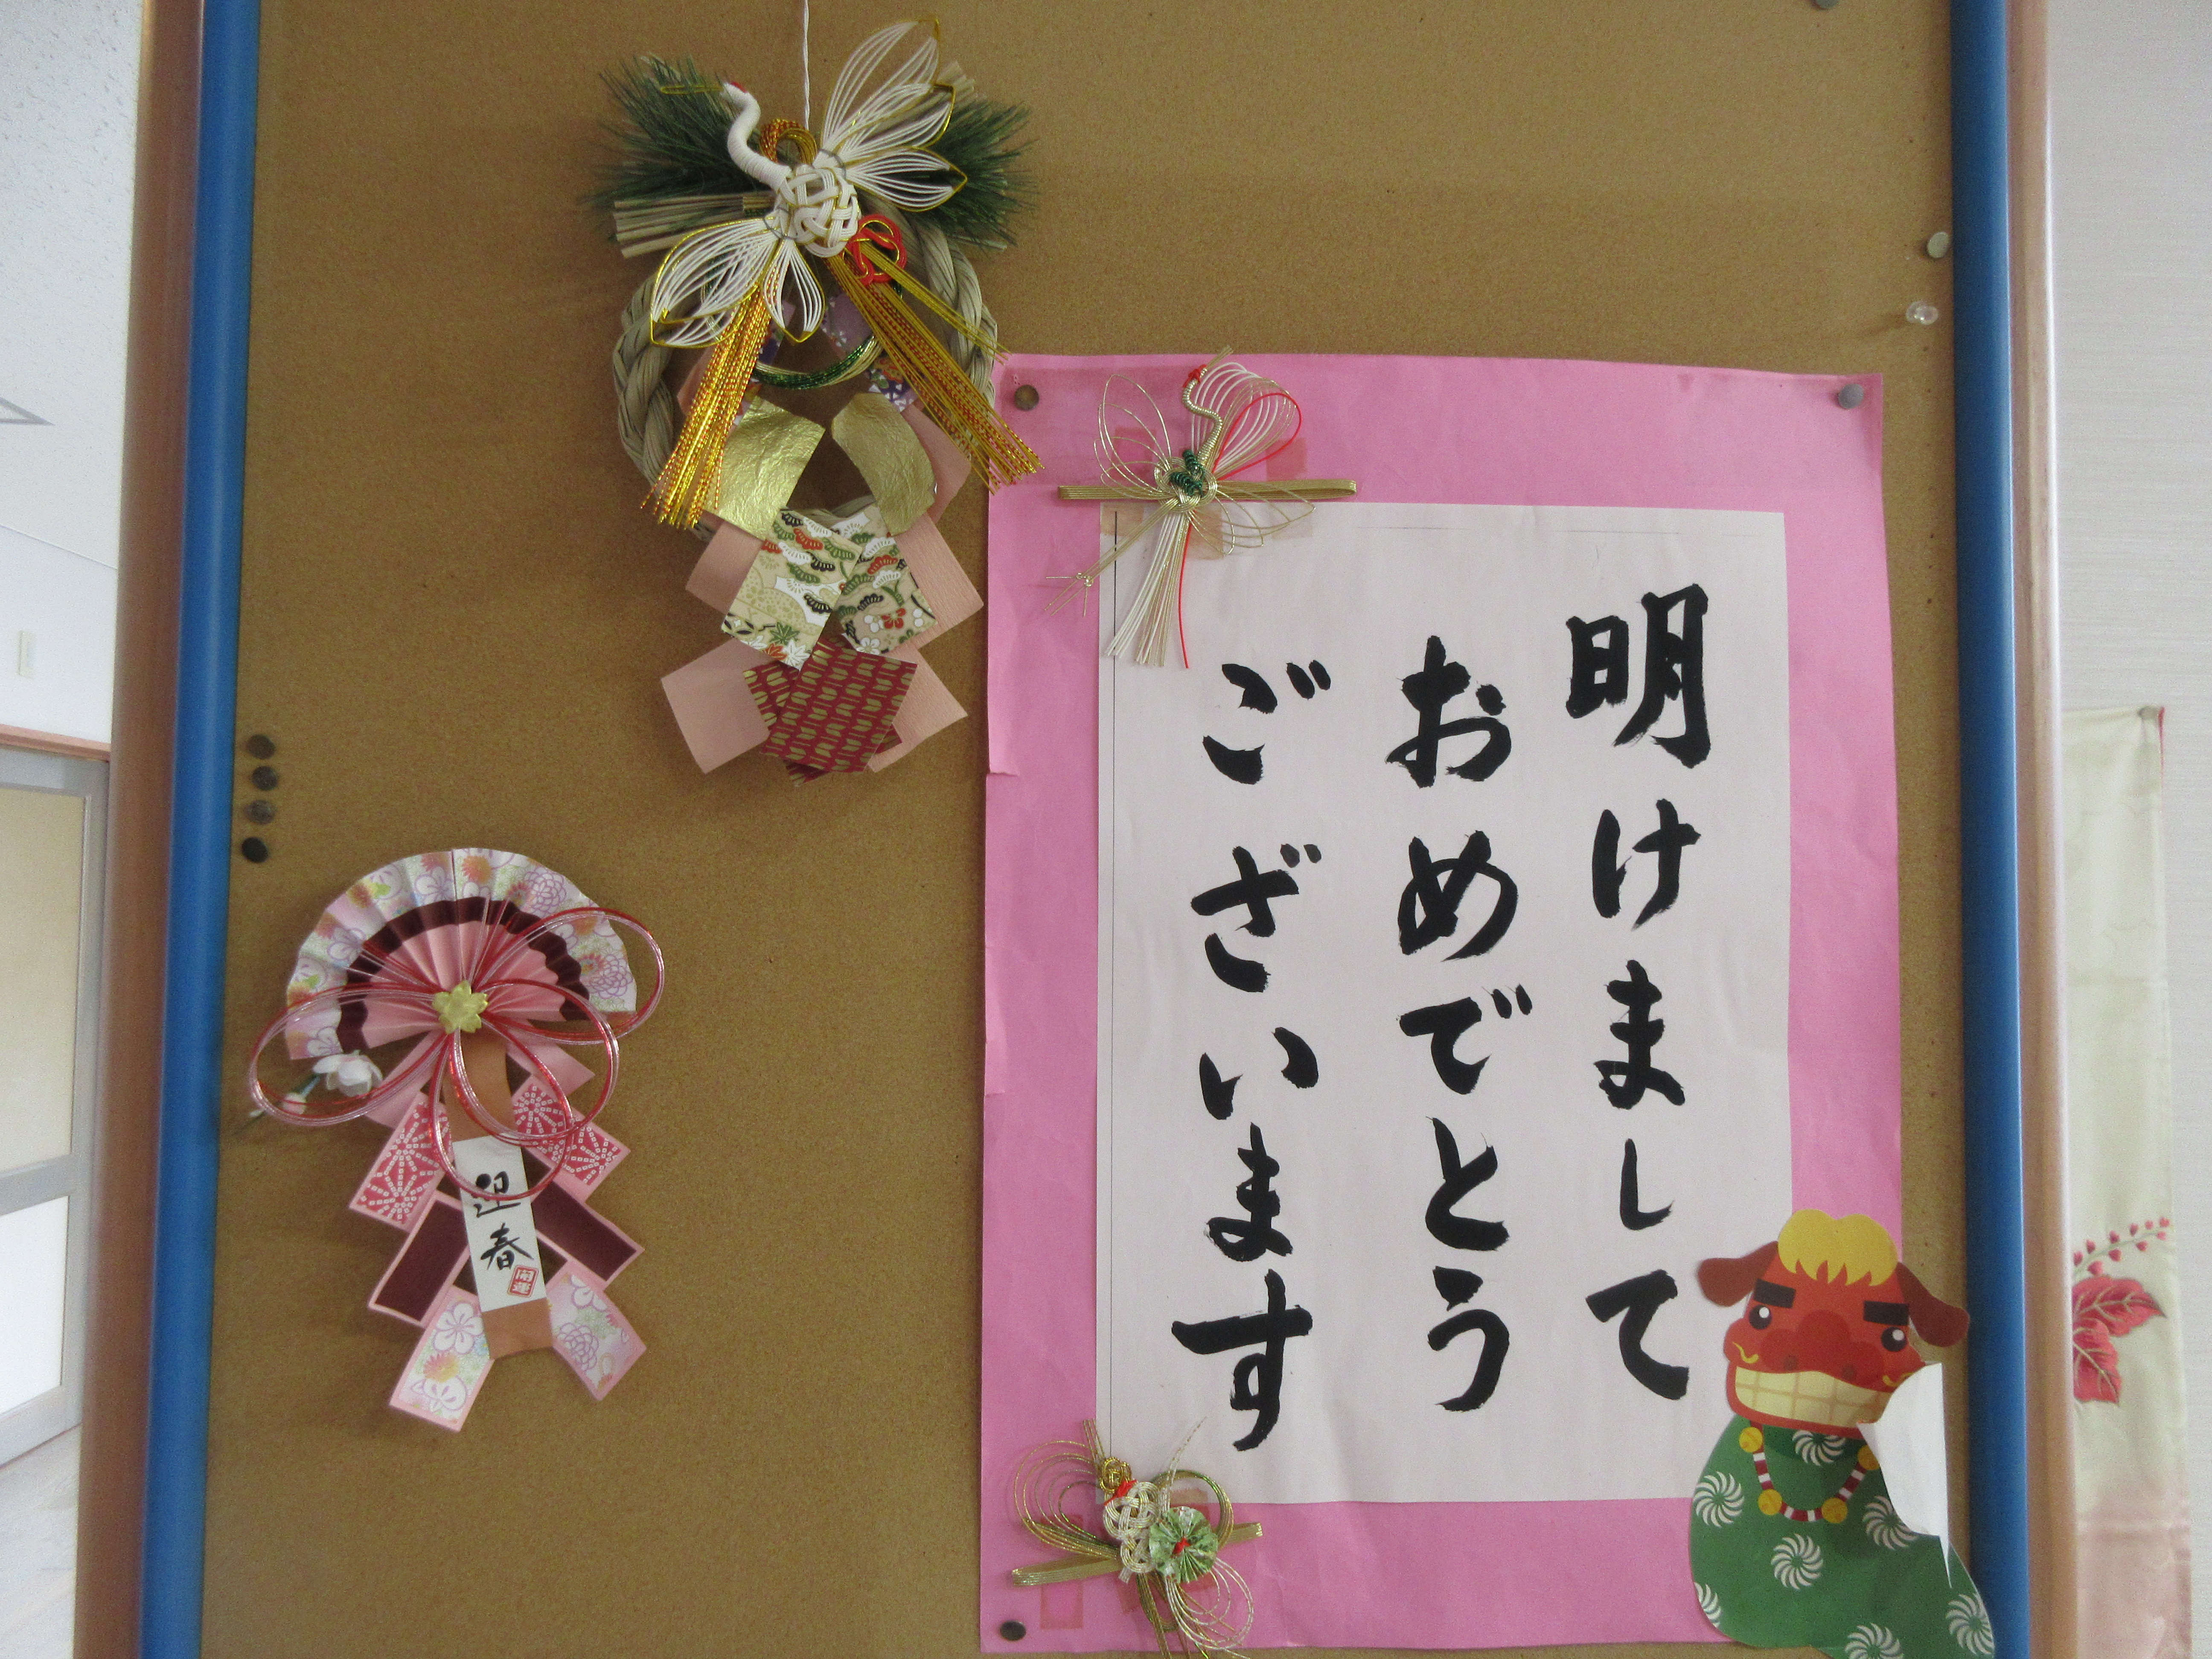 明けまして
おめでとう
ございます
迎春